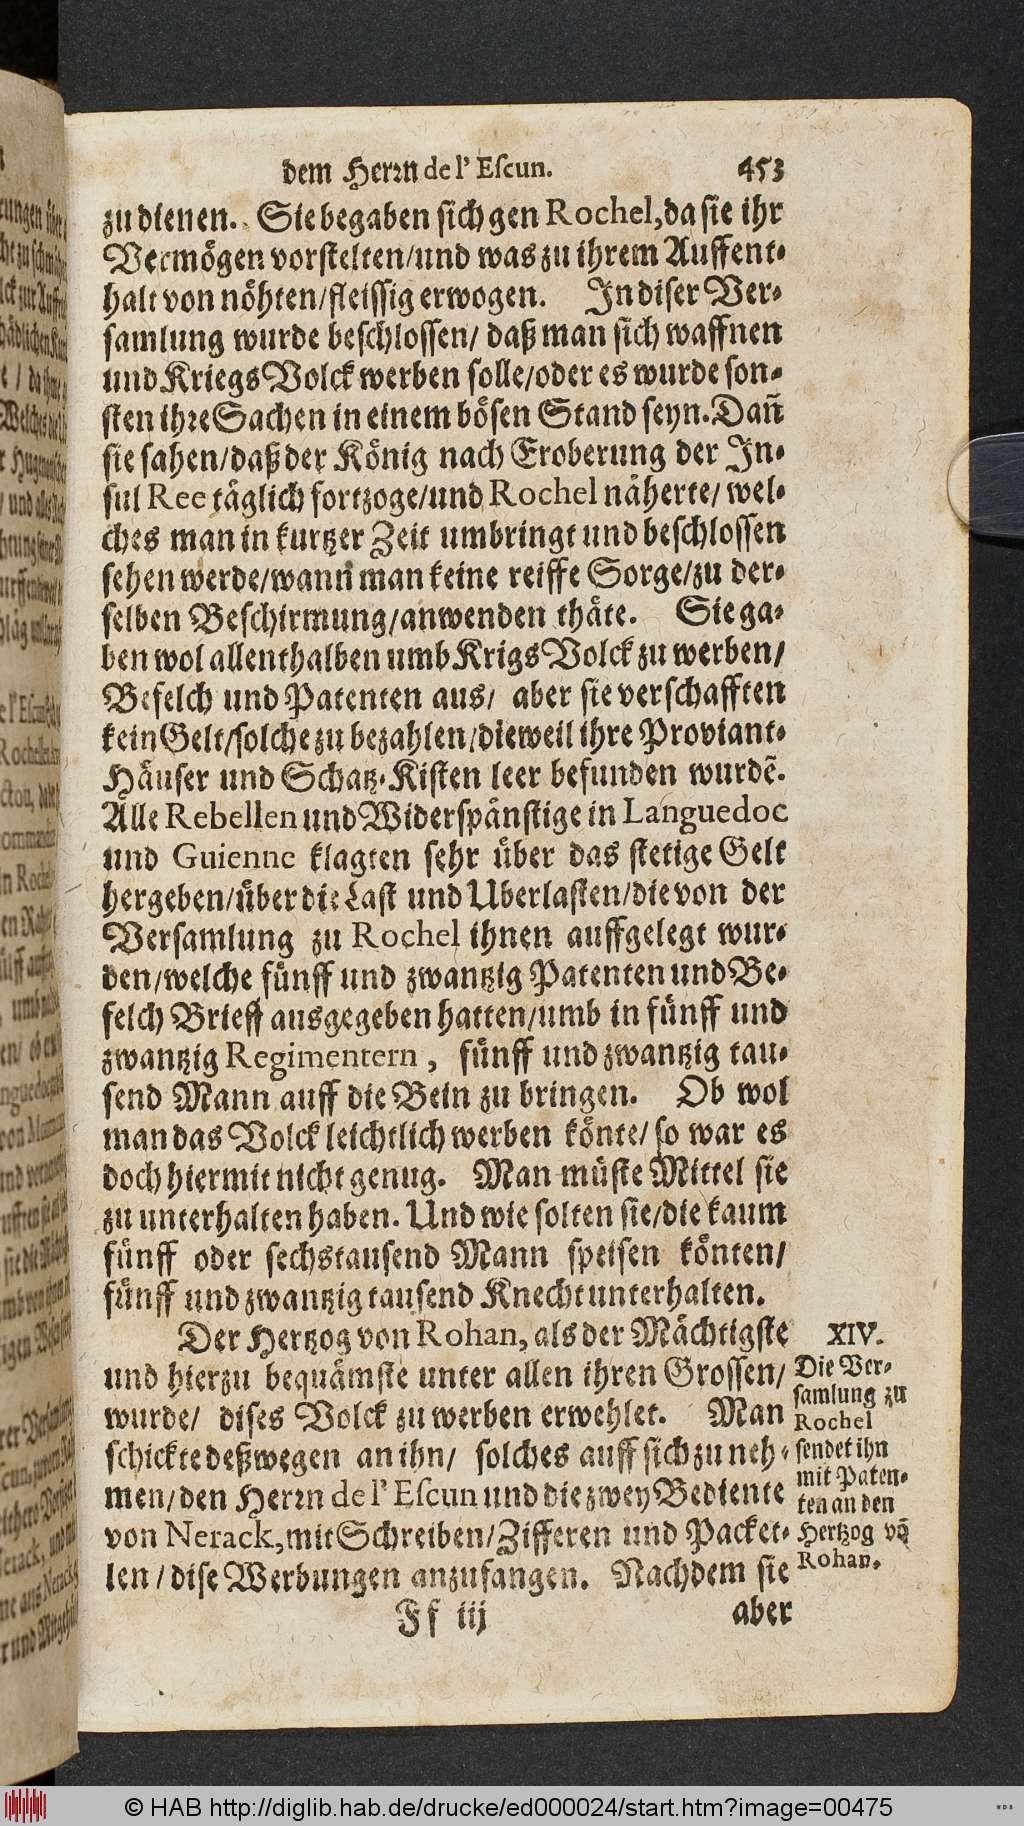 dem Herrn de l' Escun. 453
zu dienen. Sie begaben sich gen Rochel, da sie ihr
Vermögen vorstelten/und was zu ihrem Auffent-
halt von nöhten/fleissig erwogen. In diser Ver-
samlung wurde beschlossen/ daß man sich waffnen
und Kriegs Volck werben solle/oder es wurde son-
sten ihre Sachen in einem bösen Stand seyn. Dañ
sie sahen/daß der König nach Eroberung der In-
sul Ree täglich fortzoge/und Rochel näherte/ wel-
ches man in kurtzer Zeit umbringt und beschlossen
sehen werde/wann man keine reiffe Sorge/zu der-
selben Beschirmung/anwenden thäte. Sie ga-
ben wol allenthalben umb Krigs Volck zu werben/
Befelch und Patenten aus/ aber sie verschafften
kein Gelt/solche zu bezahlen/dieweil ihre Proviant-
Häuser und Schatz-Kisten leer befunden wurdē.
Alle Rebellen und Widerspänstige in Languedoc
und Guienne klagten sehr über das stetige Gelt
hergeben/über die Last und Uberlasten/die von der
Versamlung zu Rochel ihnen auffgelegt wur-
den/welche fünff und zwantzig Patenten und Be-
felch Brieff ausgegeben hatten/umb in fünff und
zwantzig Regimentern, fünff und zwantzig tau-
send Mann auff die Bein zu bringen. Ob wol
man das Volck leichtlich werben könte/ so war es
doch hiermit nicht genug. Man müste Mittel sie
zu unterhalten haben. Und wie solten sie/die kaum
fünff oder sechstausend Mann speisen könten/
fünff und zwantzig tausend Knecht unterhalten.
Der Hertzog von Rohan, als der Mächtigste
und hierzu bequämste unter allen ihren Grossen/
wurde/ dises Volck zu werben erwehlet. Man
schickte deßwegen an ihn/ solches auff sich zu neh-
men/den Herrn de l' Escun und die zwey Bediente
von Nerack, mit Schreiben/Zifferen und Packet-
len/dise Werbungen anzufangen. Nachdem sie
XIV.
Die Ver-
samlung zu
Rochel
sendet ihn
mit Paten-
ten an den
Hertzog vō
Rohan.
Ff iij aber
© HAB http://diglib.hab.de/drucke/ed000024/start.htm?image=00475